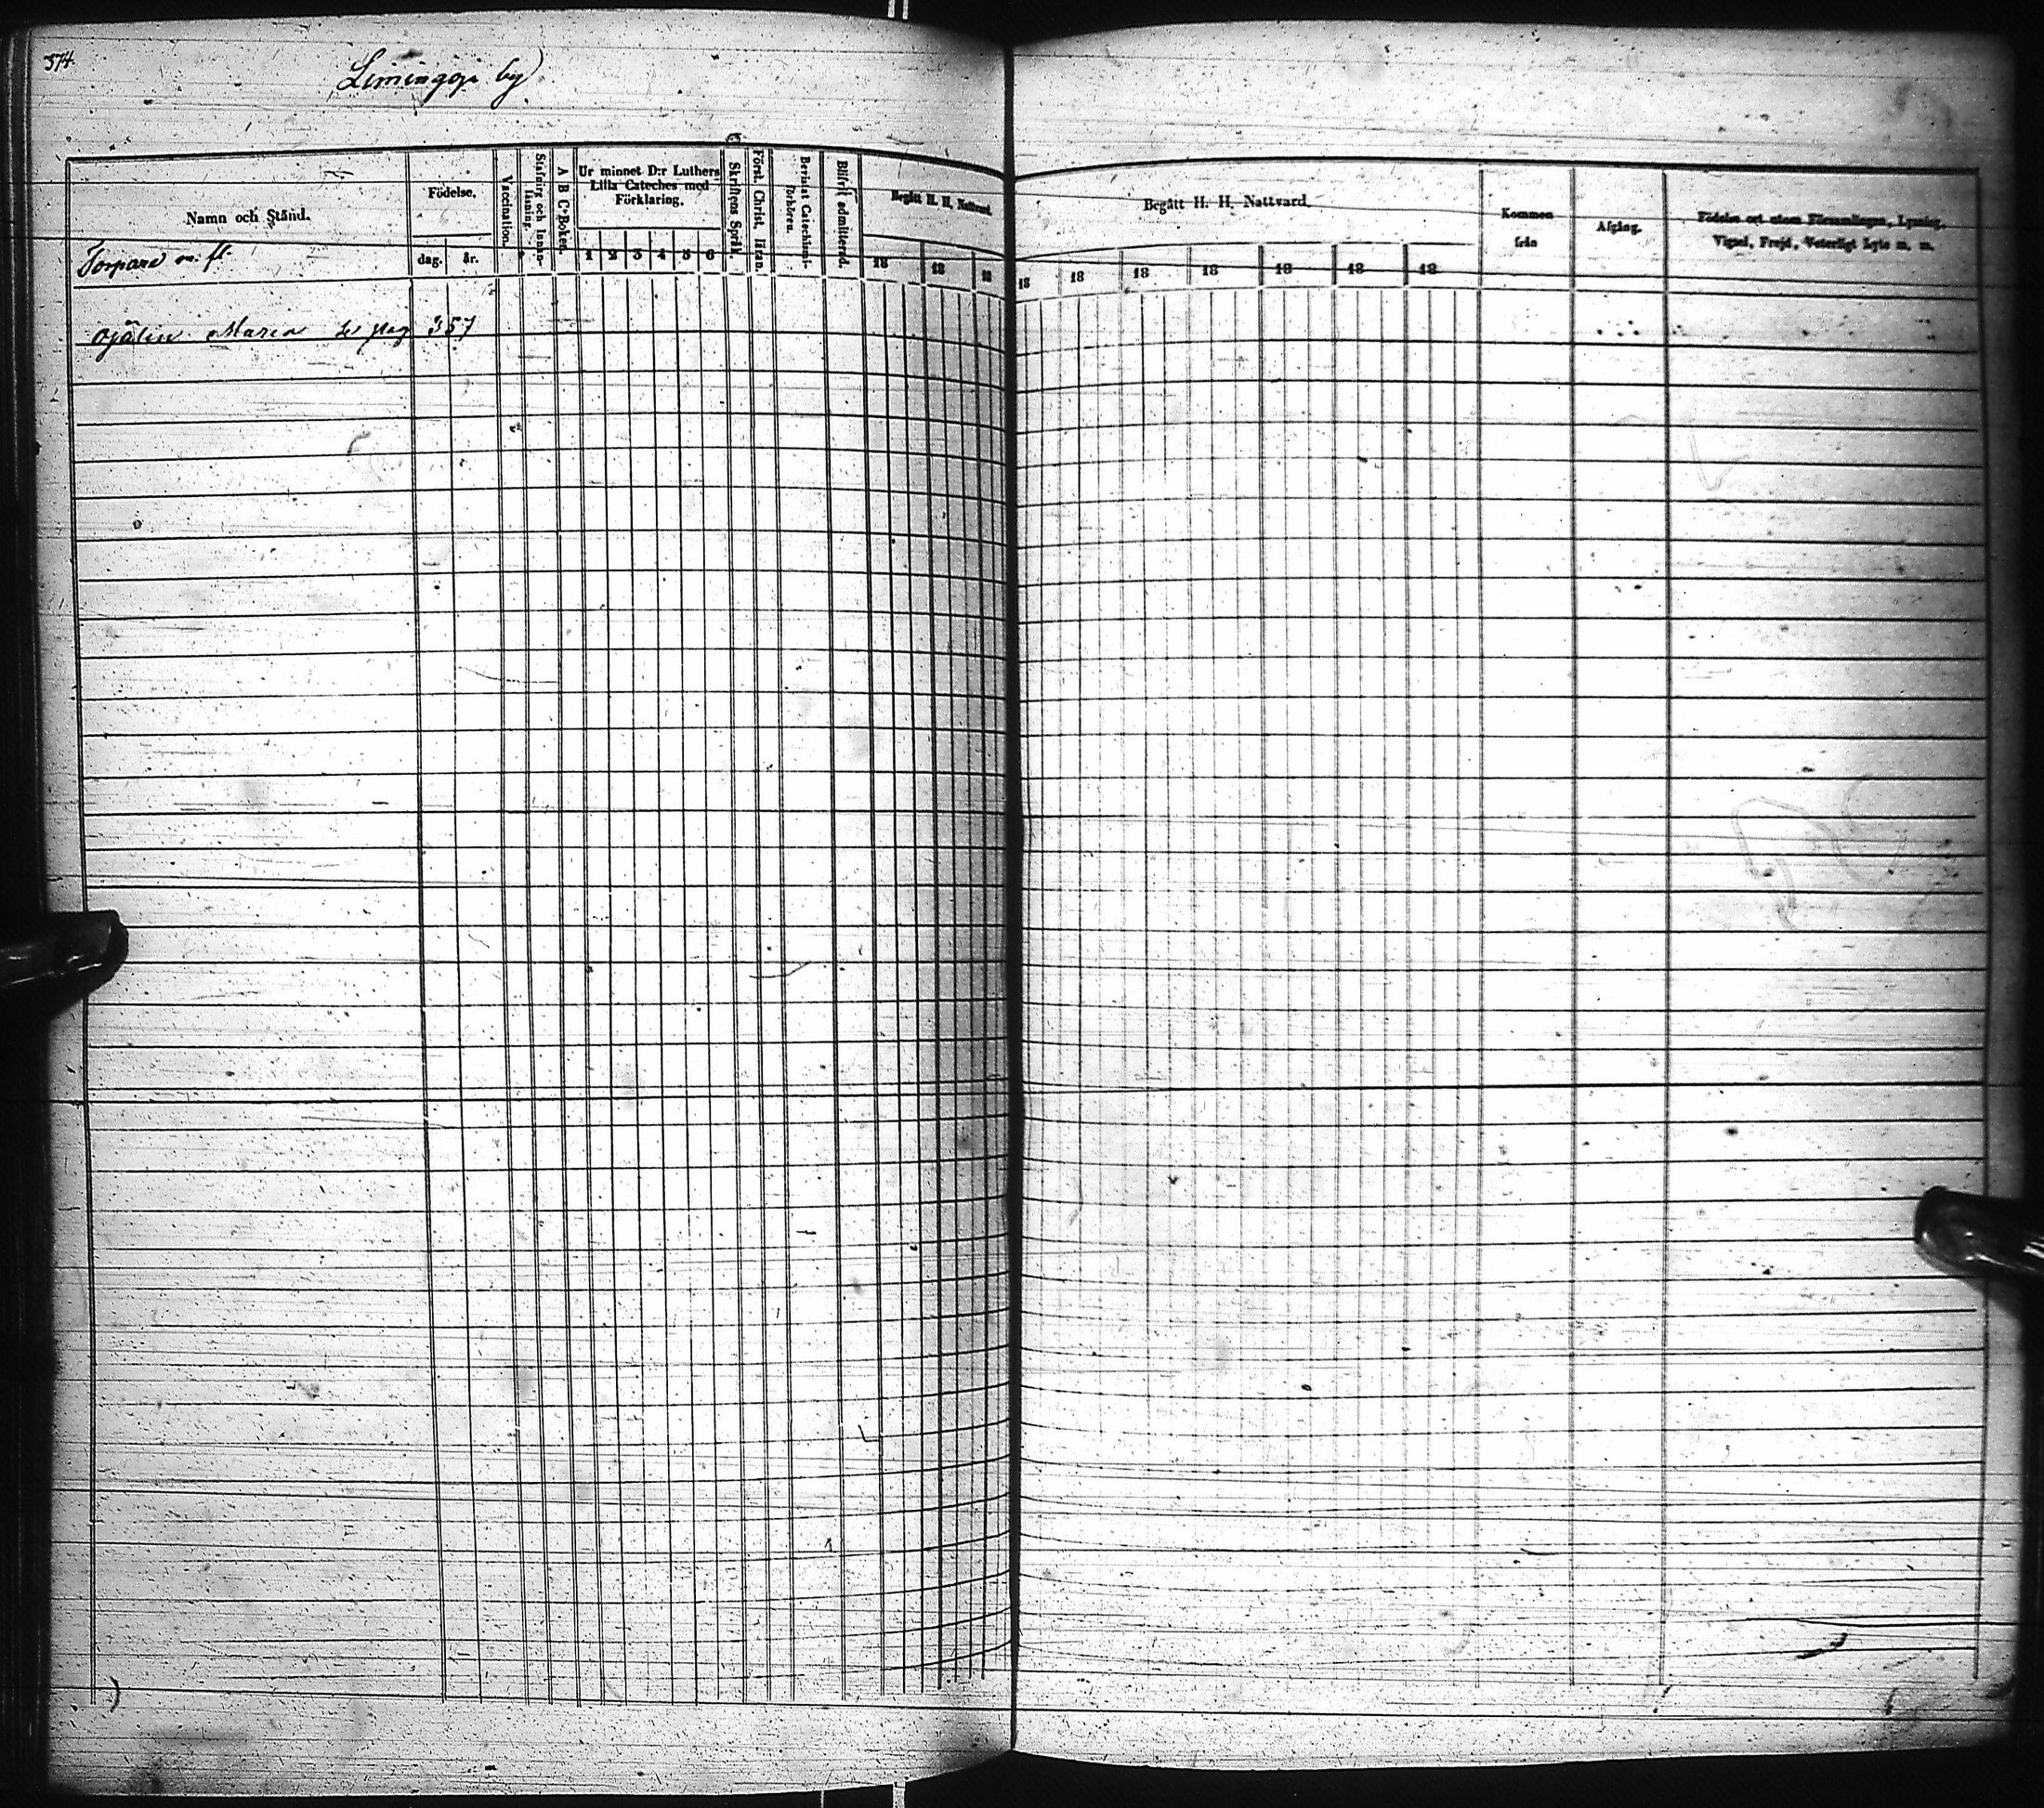 374.
Limingoja by
Namn och Stånd.
Torpare m. fl.
Födelse.
dag. år.
Vaccination.
Stafning och Innan-
läsning.
A B C-Boken.
Ur minnet D:r Luthers
Lilla Cateches med
Förklaring.
1 2 3 4 5 6
Skriftens Språk.
Först. Christ. lifran.
Bevistat Catechismi-
förhören.
Blifvit admitterad.
Begått H. H. Nattvard.
18 18 18
Begått H. H. Nattvard.
18 18 18 18 18 18 18
Kommen
från
Afgång.
Födelse ort utom Församlingen, Lysning,
Vigsel, Frejd, Veterligt Lyte m. m.
Ojälin Maria se pag 357